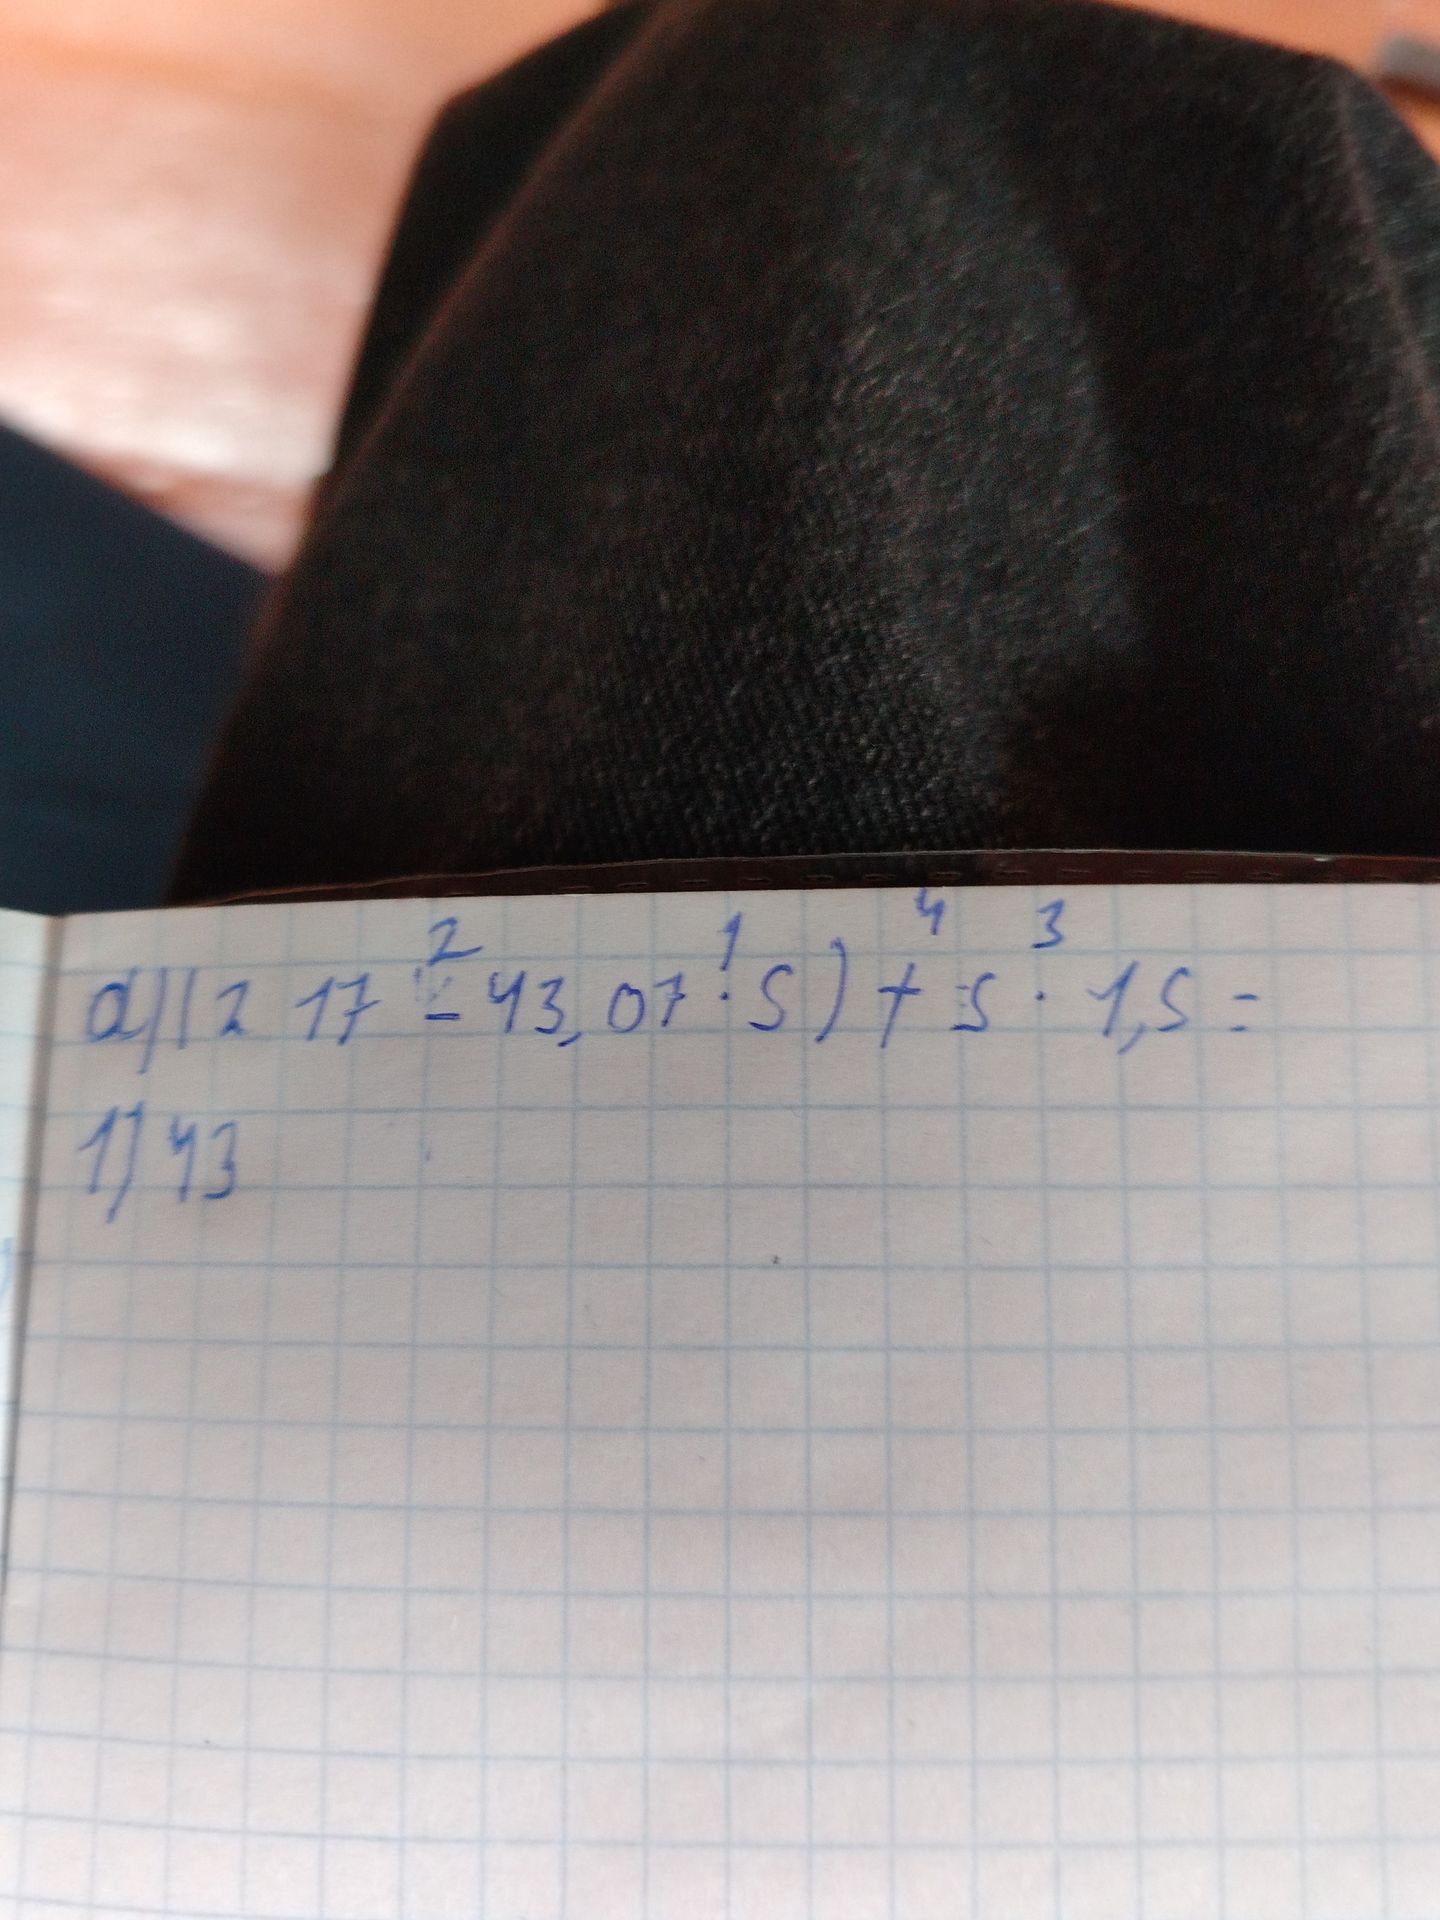 2 1 4 3
а) (217 - 43,07 · 5) + 5 · 1,5 =
1) 43